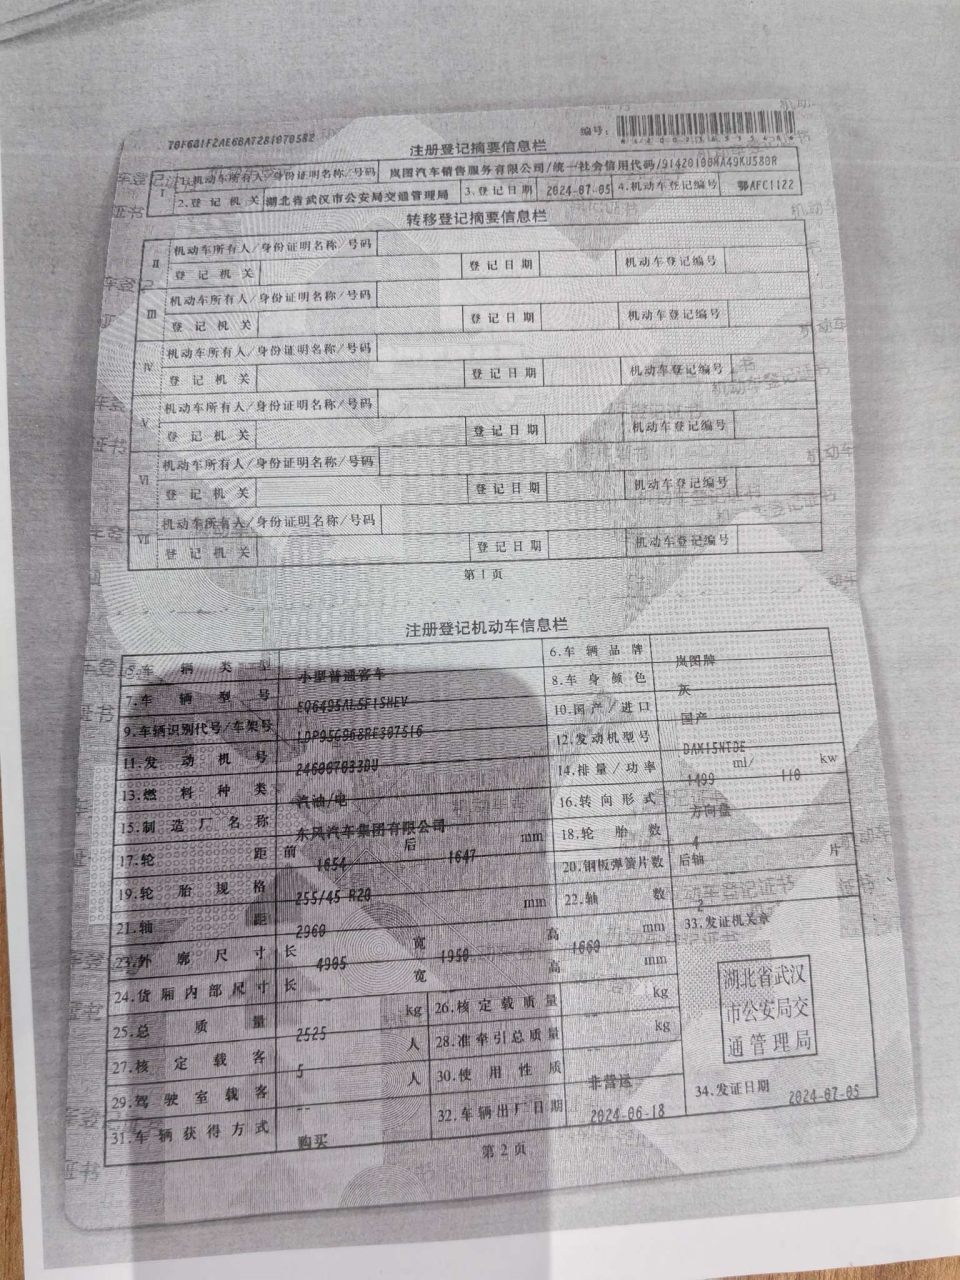 70F681F2AE6BAT281070582
编号:
注册登记摘要信息栏
I 1.机动车所有人/身份证明名称/号码 岚图汽车销售服务有限公司/统一社会信用代码/91420100MA49KU580R
2.登记机关 湖北省武汉市公安局交通管理局 3.登记日期 2024-07-05 4.机动车登记编号 鄂AFC1122
转移登记摘要信息栏
II 机动车所有人/身份证明名称/号码
登记机关 登记日期 机动车登记编号
III 机动车所有人/身份证明名称/号码
登记机关 登记日期 机动车登记编号
IV 机动车所有人/身份证明名称/号码
登记机关 登记日期 机动车登记编号
V 机动车所有人/身份证明名称/号码
登记机关 登记日期 机动车登记编号
VI 机动车所有人/身份证明名称/号码
登记机关 登记日期 机动车登记编号
VII 机动车所有人/身份证明名称/号码
登记机关 登记日期 机动车登记编号
第1页
注册登记机动车信息栏
5.车辆类型 小型普通客车 6.车辆品牌 岚图牌
7.车辆型号 EQ6495ALSF15HEV 8.车身颜色 灰
9.车辆识别代号/车架号 10.国产/进口 国产
11.发动机号 12.发动机型号 DAM15NTDE
13.燃料种类 汽油/电 14.排量/功率 1499 ml/ 110 kw
15.制造厂名称 东风汽车集团有限公司 16.转向形式 方向盘
17.轮距 前 1654 后 1647 mm 18.轮胎数 4
19.轮胎规格 255/45 R20 20.钢板弹簧片数 后轴 片
21.轴距 2960 mm 22.轴数 2
23.外廓尺寸 长 4995 宽 1950 高 1660 mm 33.发证机关章
24.货厢内部尺寸 长 宽 高 mm
25.总质量 2525 kg 26.核定载质量 kg
27.核定载客 5 人 28.准牵引总质量 kg
29.驾驶室载客 -- 人 30.使用性质 非营运
31.车辆获得方式 购买 32.车辆出厂日期 2024-06-18 34.发证日期 2024-07-05
湖北省武汉
市公安局交
通管理局
第2页